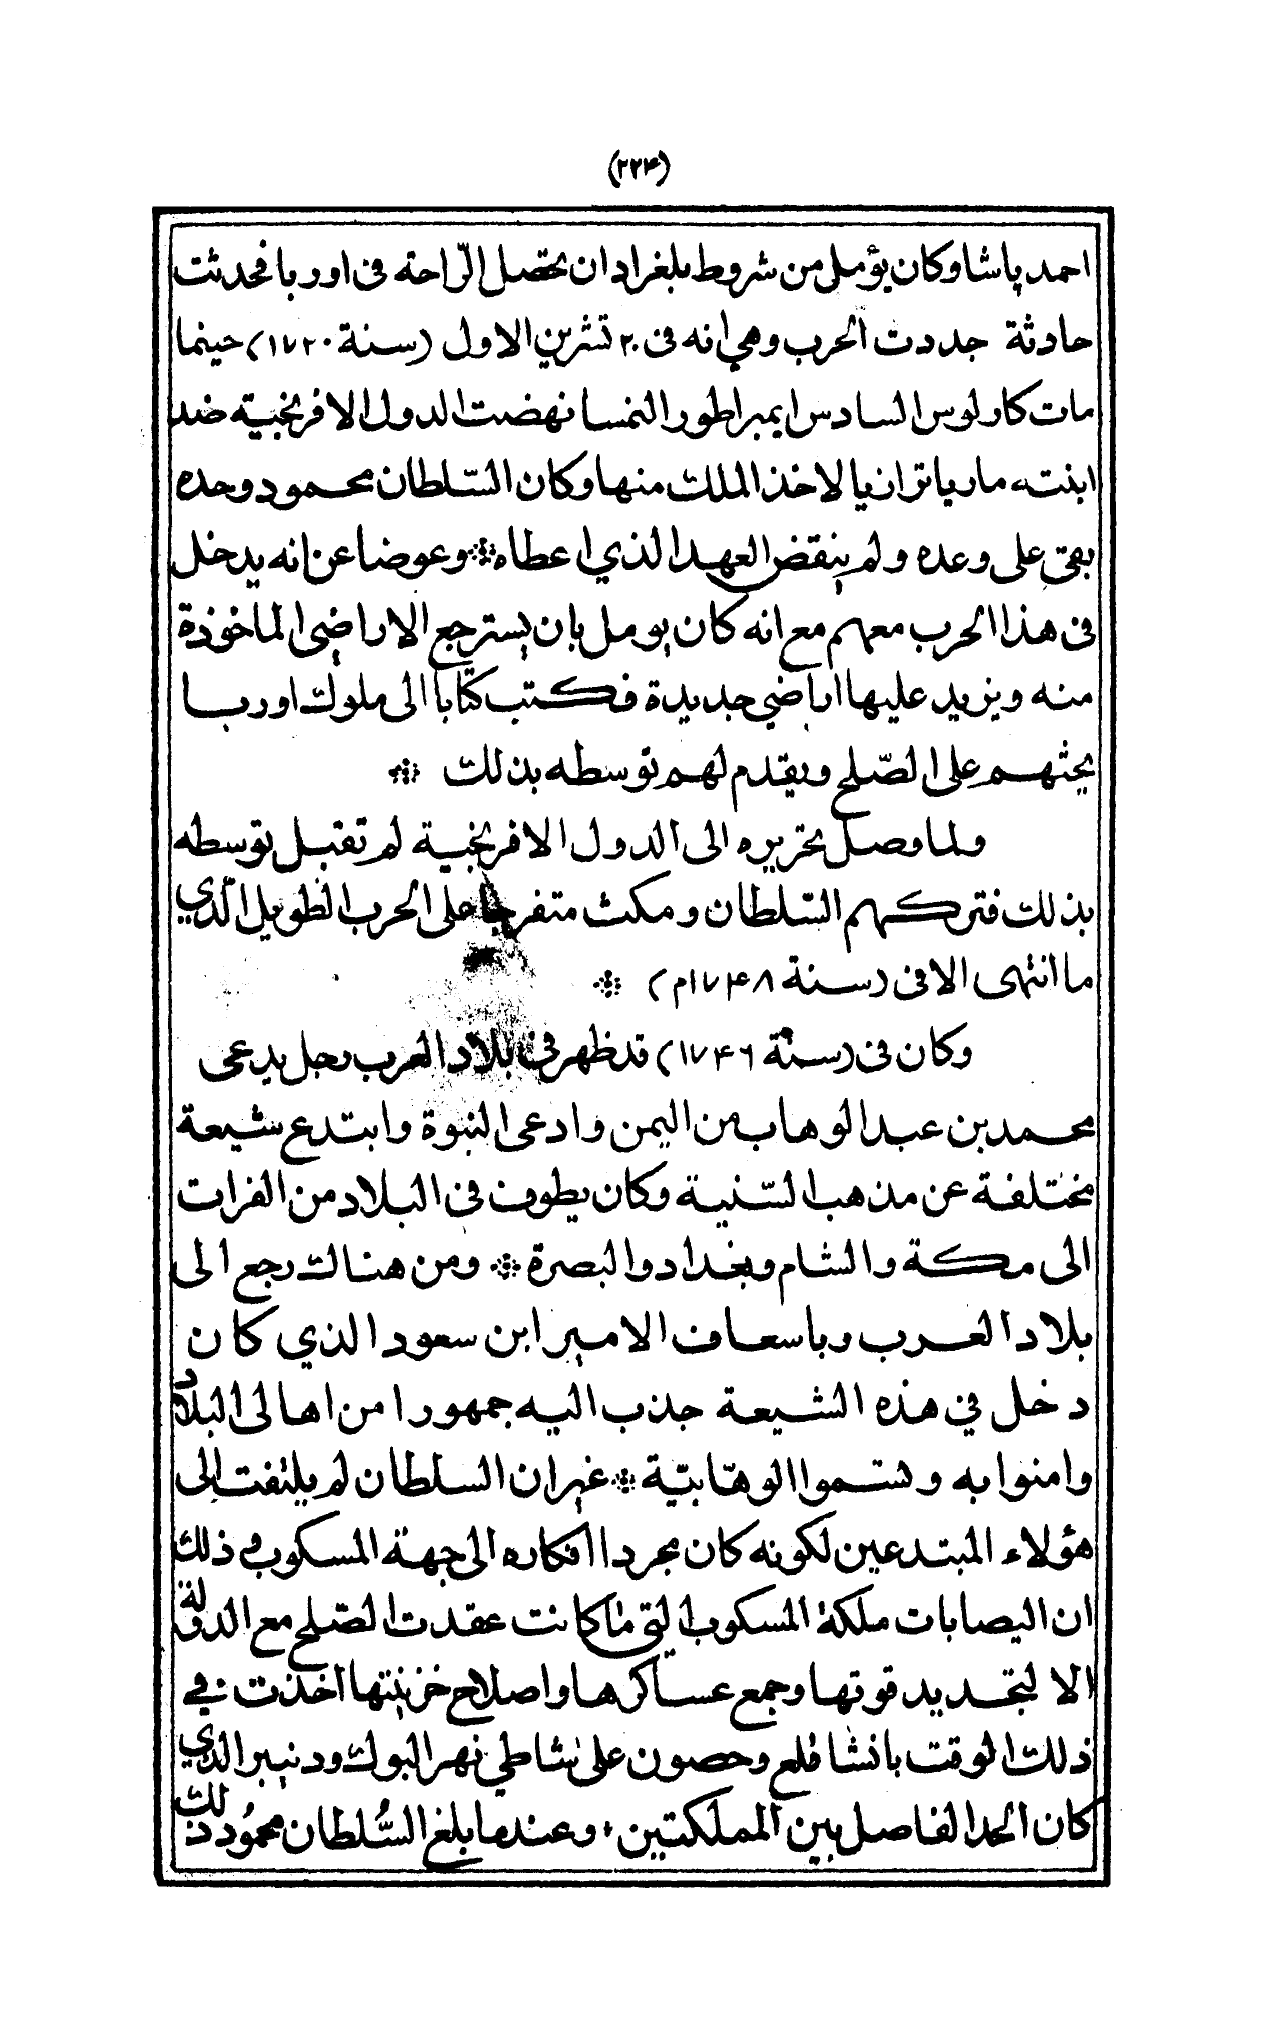 (٢٢٤)
احمد پاشا وكان يؤمل من شروط بلغراد ان يحتصل الرّاحة فى اوربا فحدثت
حادثة جددت الحرب وهي انه فى ٢٠ تشرين الاول (سنة ١٧٢٠) حينما
مات كارلوس السادس ايمبراطور النمسا نهضت الدول الافرنجية ضد
ابنته ماريا ترازيا لاخذ الملك منها وكان السّلطان محمود وحده
بقى على وعده ولم ينقض العهد الذي اعطاه ۞ وعوضا عن انه يدخل
فى هذا الحرب معهم مع انه كان يومل بان يسترجع الاراضي الماخوذة
منه ويزيد عليها اراضي جديدة فكتب كتابا الى ملوك اوربا
يحثهم على الصّلح ويقدم لهم توسطه بذلك ۞
ولما وصل تحريره الى الدول الافرنجية لم تقبل توسطه
بذلك فتركهم السّلطان ومكث متفرجا على الحرب الطويل الّذي
ما انتهى الا فى (سنة ١٧٤٨م) ۞
وكان فى (سنة ١٧٤٦) قد ظهر فى بلاد العرب رجل يدعى
محمد بن عبد الوهاب من اليمن وادعى النبوة وابتدع شيعة
مختلفة عن مذهب السّنية وكان يطوف فى البلاد من الفرات
الى مكة والشام وبغداد والبصرة ۞ ومن هناك رجع الى
بلاد العرب وباسعاف الامير ابن سعود الذي كان
دخل في هذه الشيعة جذب اليه جمهورا من اهالى البلاد
وامنوا به وشتموا الوهّابيّة ۞ غير ان السلطان لم يلتفت الى
هؤلاء المبتدعين لكونه كان مجردا افكاره الى جهة المسكوب وذلك
ان اليصابات ملكة المسكوب التي ما كانت عقدت الصّلح مع الدولة
الا لتجديد قوتها وجمع عساكرها واصلاح خزينتها اخذت في
ذلك الوقت بانشا قلع وحصون على شاطي نهر البوك ودنيبر الذي
كان الحد الفاصل بين المملكتين ٠ وعندما بلغ السُّلطان محمُود ذلك